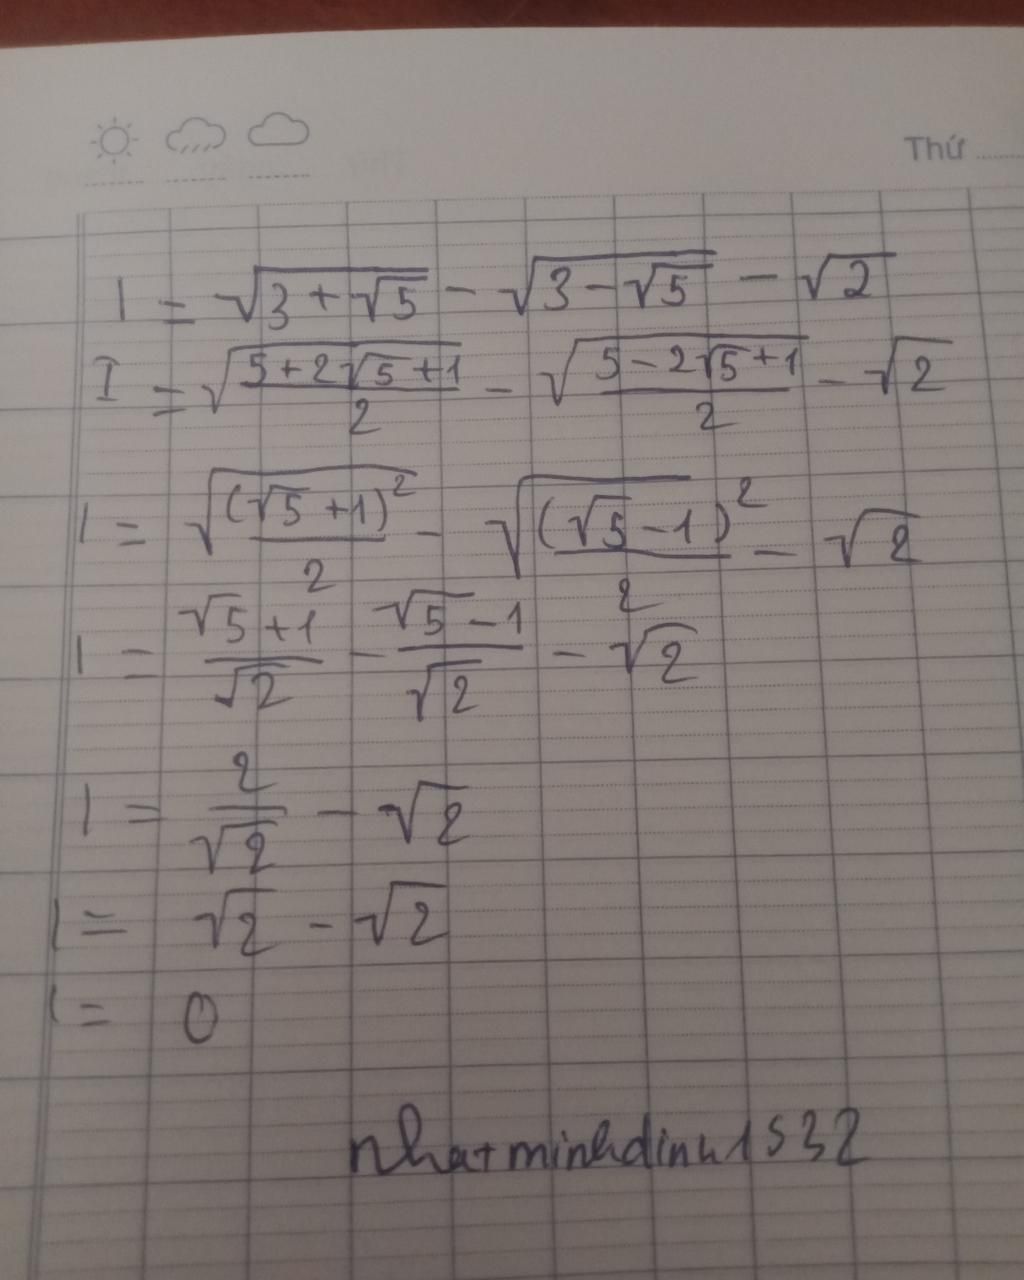 Thứ
I = √(3 + √5) - √(3 - √5) - √2
I = √((5 + 2√5 + 1)/2) - √((5 - 2√5 + 1)/2) - √2
I = √((√5 + 1)²/2) - √((√5 - 1)²/2) - √2
I = (√5 + 1)/√2 - (√5 - 1)/√2 - √2
I = 2/√2 - √2
I = √2 - √2
I = 0
nhatminhdinh1532